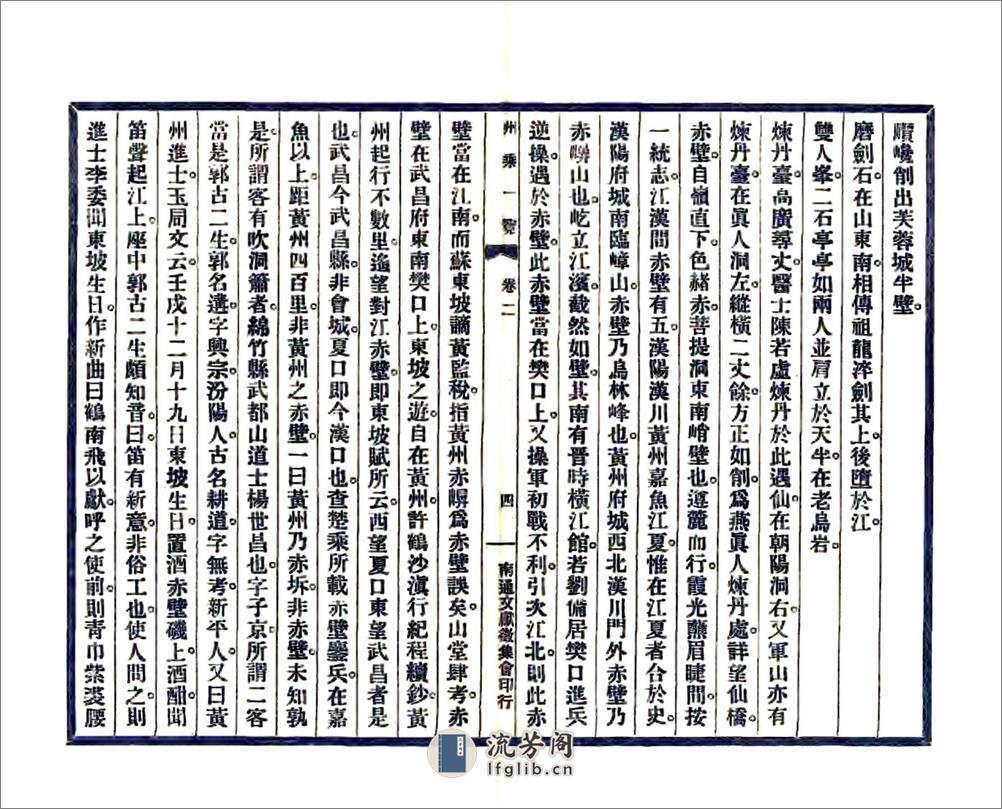 巑巉削出芙蓉城半壁。
磨劍石在山東南相傳祖龍淬劍其上。後墮於江。
雙人峯二石亭亭如兩人並肩立於天半在老烏岩。
煉丹臺高廣尋丈醫士陳若虛煉丹於此遇仙在朝陽洞右。又軍山亦有
煉丹臺在眞人洞左。縱橫二丈餘。方正如削。爲燕眞人煉丹處。詳望仙橋。
赤壁。自嶺直下。色赭赤。菩提洞東南峭壁也。遵麓而行。霞光蘸眉睫間按
一統志。江漢間赤壁有五。漢陽漢川黃州嘉魚江夏。惟在江夏者合於史。
漢陽府城南臨嶂山。赤壁乃烏林峰也。黃州府城西北漢川門外赤壁乃
赤嶭山也。屹立江濱。截然如壁。其南有晋時橫江館。若劉備居樊口進兵
逆操。遇於赤壁。此赤壁當在樊口上。又操軍初戰不利。引次江北。則此赤
州乘一覽 卷二 四 南通文獻徵集會印行
壁當在江南。而蘇東坡謫黃監稅。指黃州赤嶭爲赤壁誤矣。山堂肆考。赤
壁在武昌府東南樊口上。東坡之遊。自在黃州。許鶴沙滇行紀程續鈔。黃
州起行不數里。遙望對江赤壁。即東坡賦所云。西望夏口東望武昌者是
也。武昌今武昌縣。非會城。夏口即今漢口也。查楚乘所載赤壁鏖兵。在嘉
魚以上。距黃州四百里。非黃州之赤壁。一曰黃州乃赤坼。非赤壁。未知孰
是。所謂客有吹洞簫者。綿竹縣武都山道士楊世昌也。字子京。所謂二客
當是郭古二生。郭名遘。字興宗。汾陽人。古名耕道。字無考。新平人。又曰黃
州進士玉局文云。壬戌十二月十九日。東坡生日。置酒赤壁磯上。酒酣聞
笛聲起江上。座中郭古二生頗知音。曰。笛有新意。非俗工也。使人問之則
進士李委聞東坡生日。作新曲曰鶴南飛以獻。呼之使前。則青巾紫裘腰
流芳阁
lfglib.cn